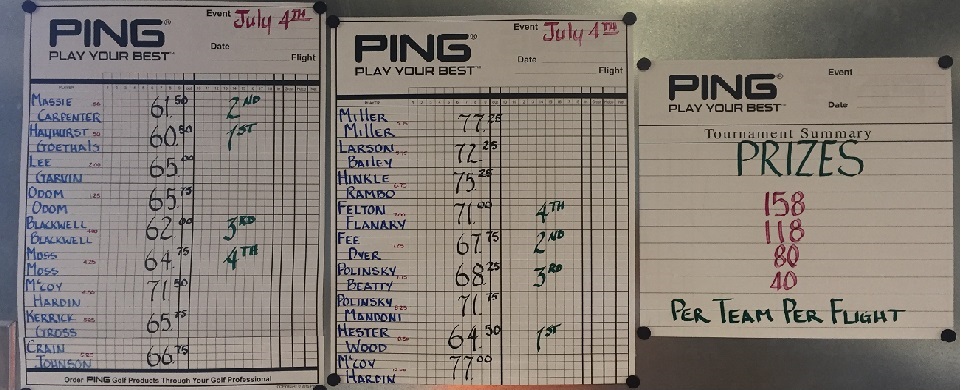 Event July 4TH
PING®
PLAY YOUR BEST™
Date
Flight
MASSIE
CARPENTER 61.50 2ND
HAYHURST
GOETHALS 60.50 1ST
LEE
GARVIN 65.00
ODOM
ODOM 65.75
BLACKWELL
BLACKWELL 62.00 3RD
MOSS
MOSS 64.75 4TH
McCOY
HARDIN 71.50
KERRICK
GROSS 65.75
CRAIN
JOHNSON 66.75
Order PING Golf Products Through Your Golf Professional
Event July 4TH
PING®
PLAY YOUR BEST™
Date
Flight
MILLER
MILLER 77.25
LARSON
BAILEY 72.25
HINKLE
RAMBO 75.25
FELTON
FLANARY 71.00 4TH
FEE
DYER 67.75 2ND
POLINSKY
BEATTY 68.25 3RD
POLINSKY
MANDONI 71.75
HESTER
WOOD 64.50 1ST
McCOY
HARDIN 77.00
PING®
PLAY YOUR BEST™
Event
Date
Tournament Summary
PRIZES
158
118
80
40
PER TEAM PER FLIGHT